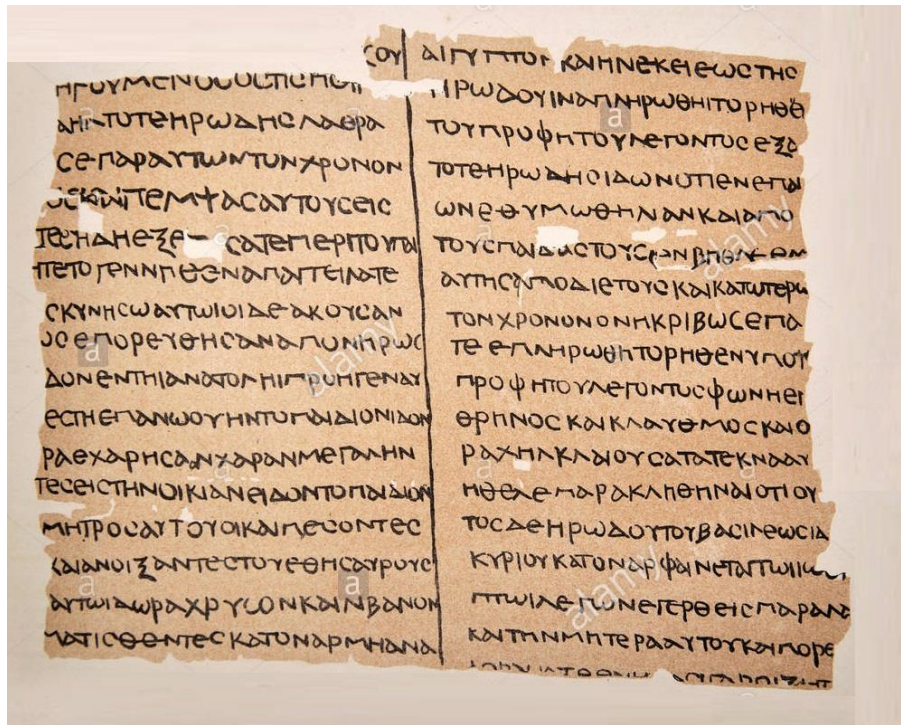 ϹΟΥ
ΗΓΟΥΜΕΝΟϹΟϹΤΙϹ
ΑΗΛΤΟΤΕΗΡΩΔΗϹΛΑΘΡΑ
ϹΕΠΑΡΑΥΤΩΝΤΟΝΧΡΟΝΟΝ
ΠΕΜΨΑϹΑΥΤΟΥϹΕΙϹ
ϹΑΤΕΠΕΡΙΤΟΥΠΑΙ
ΑΠΑΓΓΕΙΛΑΤΕ
ϹΚΥΝΗϹΩΑΥΤΩΙΟΙΔΕΑΚΟΥϹΑΝ
ΟϹΕΠΟΡΕΥΘΗϹΑΝ
ΔΟΝΕΝΤΗΙΑΝΑΤΟΛΗΙΠΡΟΗΓΕΝΑΥ
ΕϹΤΗΕΠΑΝΩΟΥΗΝΤΟΠΑΙΔΙΟΝΙΔΟΝ
ΡΑΕΧΑΡΗϹΑΝΧΑΡΑΝΜΕΓΑΛΗΝ
ΤΕϹΕΙϹΤΗΝΟΙΚΙΑΝΕΙΔΟΝΤΟΠΑΙΔΙΟΝ
ΜΗΤΡΟϹΑΥΤΟΥΟΙΚΑΙΠΕϹΟΝΤΕϹ
ΚΑΙΑΝΟΙΞΑΝΤΕϹΤΟΥΕΘΗϹΑΥΡΟΥϹ
ΑΥΤΩΙΔΩΡΑΧΡΥϹΟΝΚΑΙΛΙΒΑΝΟΝ
ΜΑΤΙϹΘΕΝΤΕϹΚΑΤΟΝΑΡΜΗΑΝΑ
ΑΙΓΥΠΤΟΝΚΑΙΗΝΕΚΕΙΕΩϹΤΗϹ
ΗΡΩΔΟΥΙΝΑΠΛΗΡΩΘΗΙΤΟΡΗΘΕ
ΤΟΥΠΡΟΦΗΤΟΥΛΕΓΟΝΤΟϹΕΞΑ
ΤΟΤΕΗΡΩΔΗϹΙΔΩΝΟΤΙΕΝΕΠΑΙ
ΩΝΕΘΥΜΩΘΗΛΑΝΚΑΙΑΠΟ
ΤΟΥϹΠΑΙΔΑϹΤΟΥϹΕΝΒΗΘΛΕΕΜ
ΑΥΤΗϹΑΠΟΔΙΕΤΟΥϹΚΑΙΚΑΤΩΤΕΡΩ
ΤΟΝΧΡΟΝΟΝΟΝΗΚΡΙΒΩϹΕΠΑ
ΤΕΕΠΛΗΡΩΘΗΤΟΡΗΘΕΝΥΠΟΥ
ΠΡΟΦΗΤΟΥΛΕΓΟΝΤΟϹΦΩΝΗΕΙ
ΘΡΗΝΟϹΚΑΙΚΛΑΥΘΜΟϹΚΑΙΟ
ΡΑΧΗΛΚΛΑΙΟΥϹΑΤΑΤΕΚΝΑΑΥ
ΗΘΕΛΕΠΑΡΑΚΛΗΘΗΝΑΙΟΤΙΟΥ
ΤΟϹΔΕΗΡΩΔΟΥΤΟΥΒΑϹΙΛΕΩϹΙΔ
ΚΥΡΙΟΥΚΑΤΟΝΑΡΦΑΙΝΕΤΑΙΤΩΙΙΩ
ΠΤΩΙΛΕΓΩΝΕΓΕΡΘΕΙϹΠΑΡΑΛΑ
ΚΑΙΤΗΝΜΗΤΕΡΑΑΥΤΟΥΚΑΙΠΟΡΕ